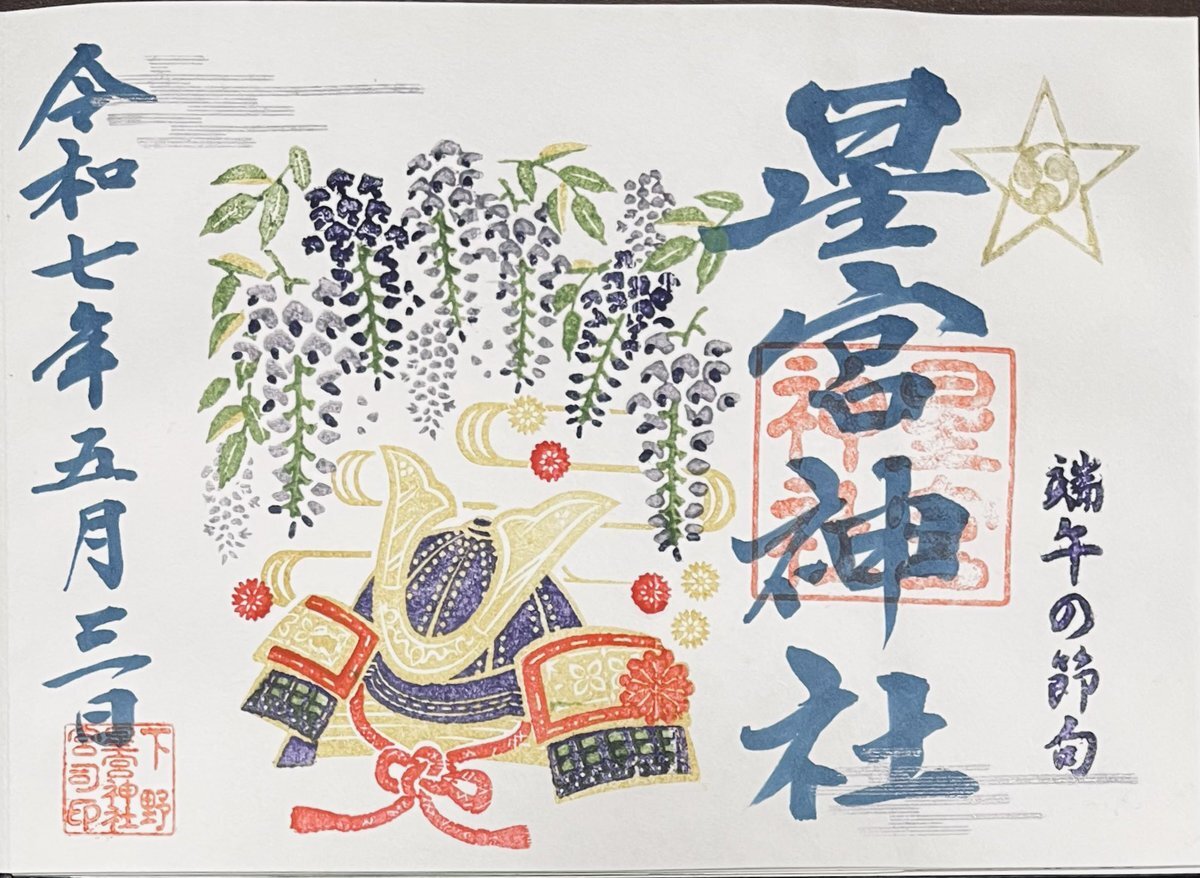 端午の節句
星宮神社
星宮
神社
令和七年五月三日
下野
星宮神社
宮司印